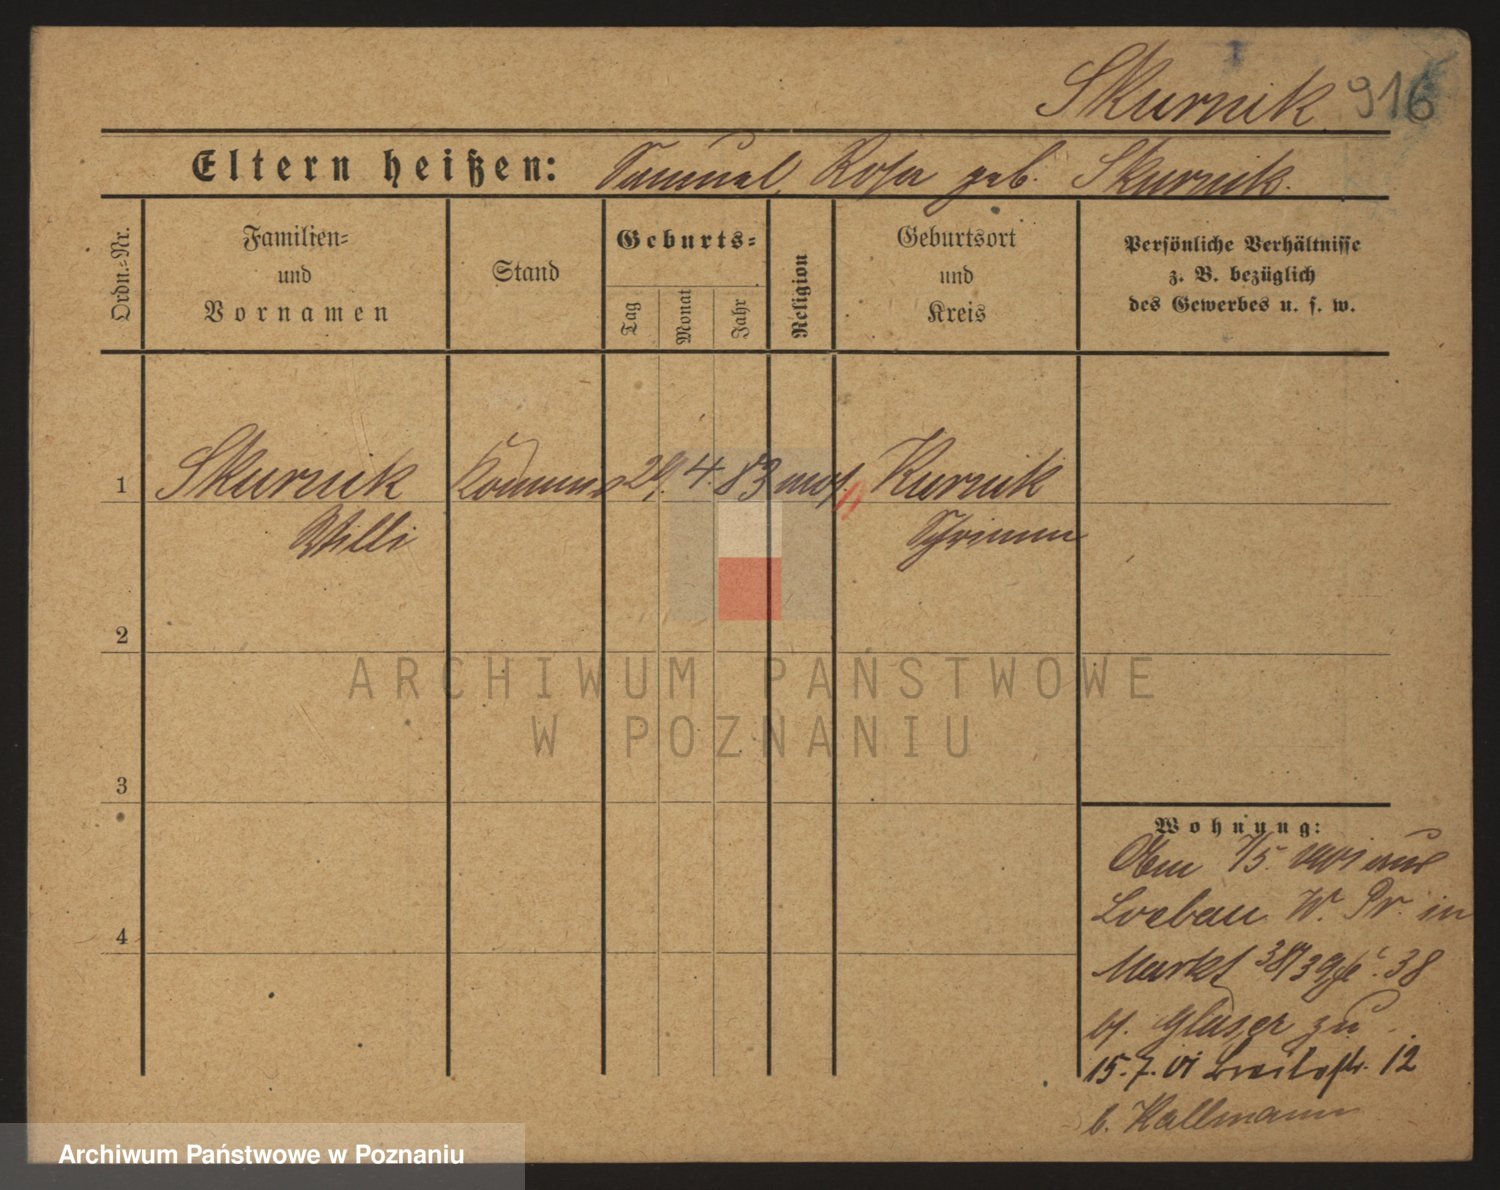 Skurnik 916
Eltern heißen: Samuel, Rosa geb. Skurnik.
Ordn.=Nr.
Familien=
und
Vornamen
Stand
Geburts=
Tag
Monat
Jahr
Religion
Geburtsort
und
Kreis
Persönliche Verhältnisse
z. B. bezüglich
des Gewerbes u. s. w.
1 Skurnik 4. 83 mos. Kurnik
Willi Schrimm
2
ARCHIWUM PAŃSTWOWE
W POZNANIU
3
Wohnung:
1/5. aus
Loebau W. Pr. in
4
Markt 38
bs. Glaser zu
15. 7. 01 Breitestr. 12
b. Kallmann
Archiwum Państwowe w Poznaniu